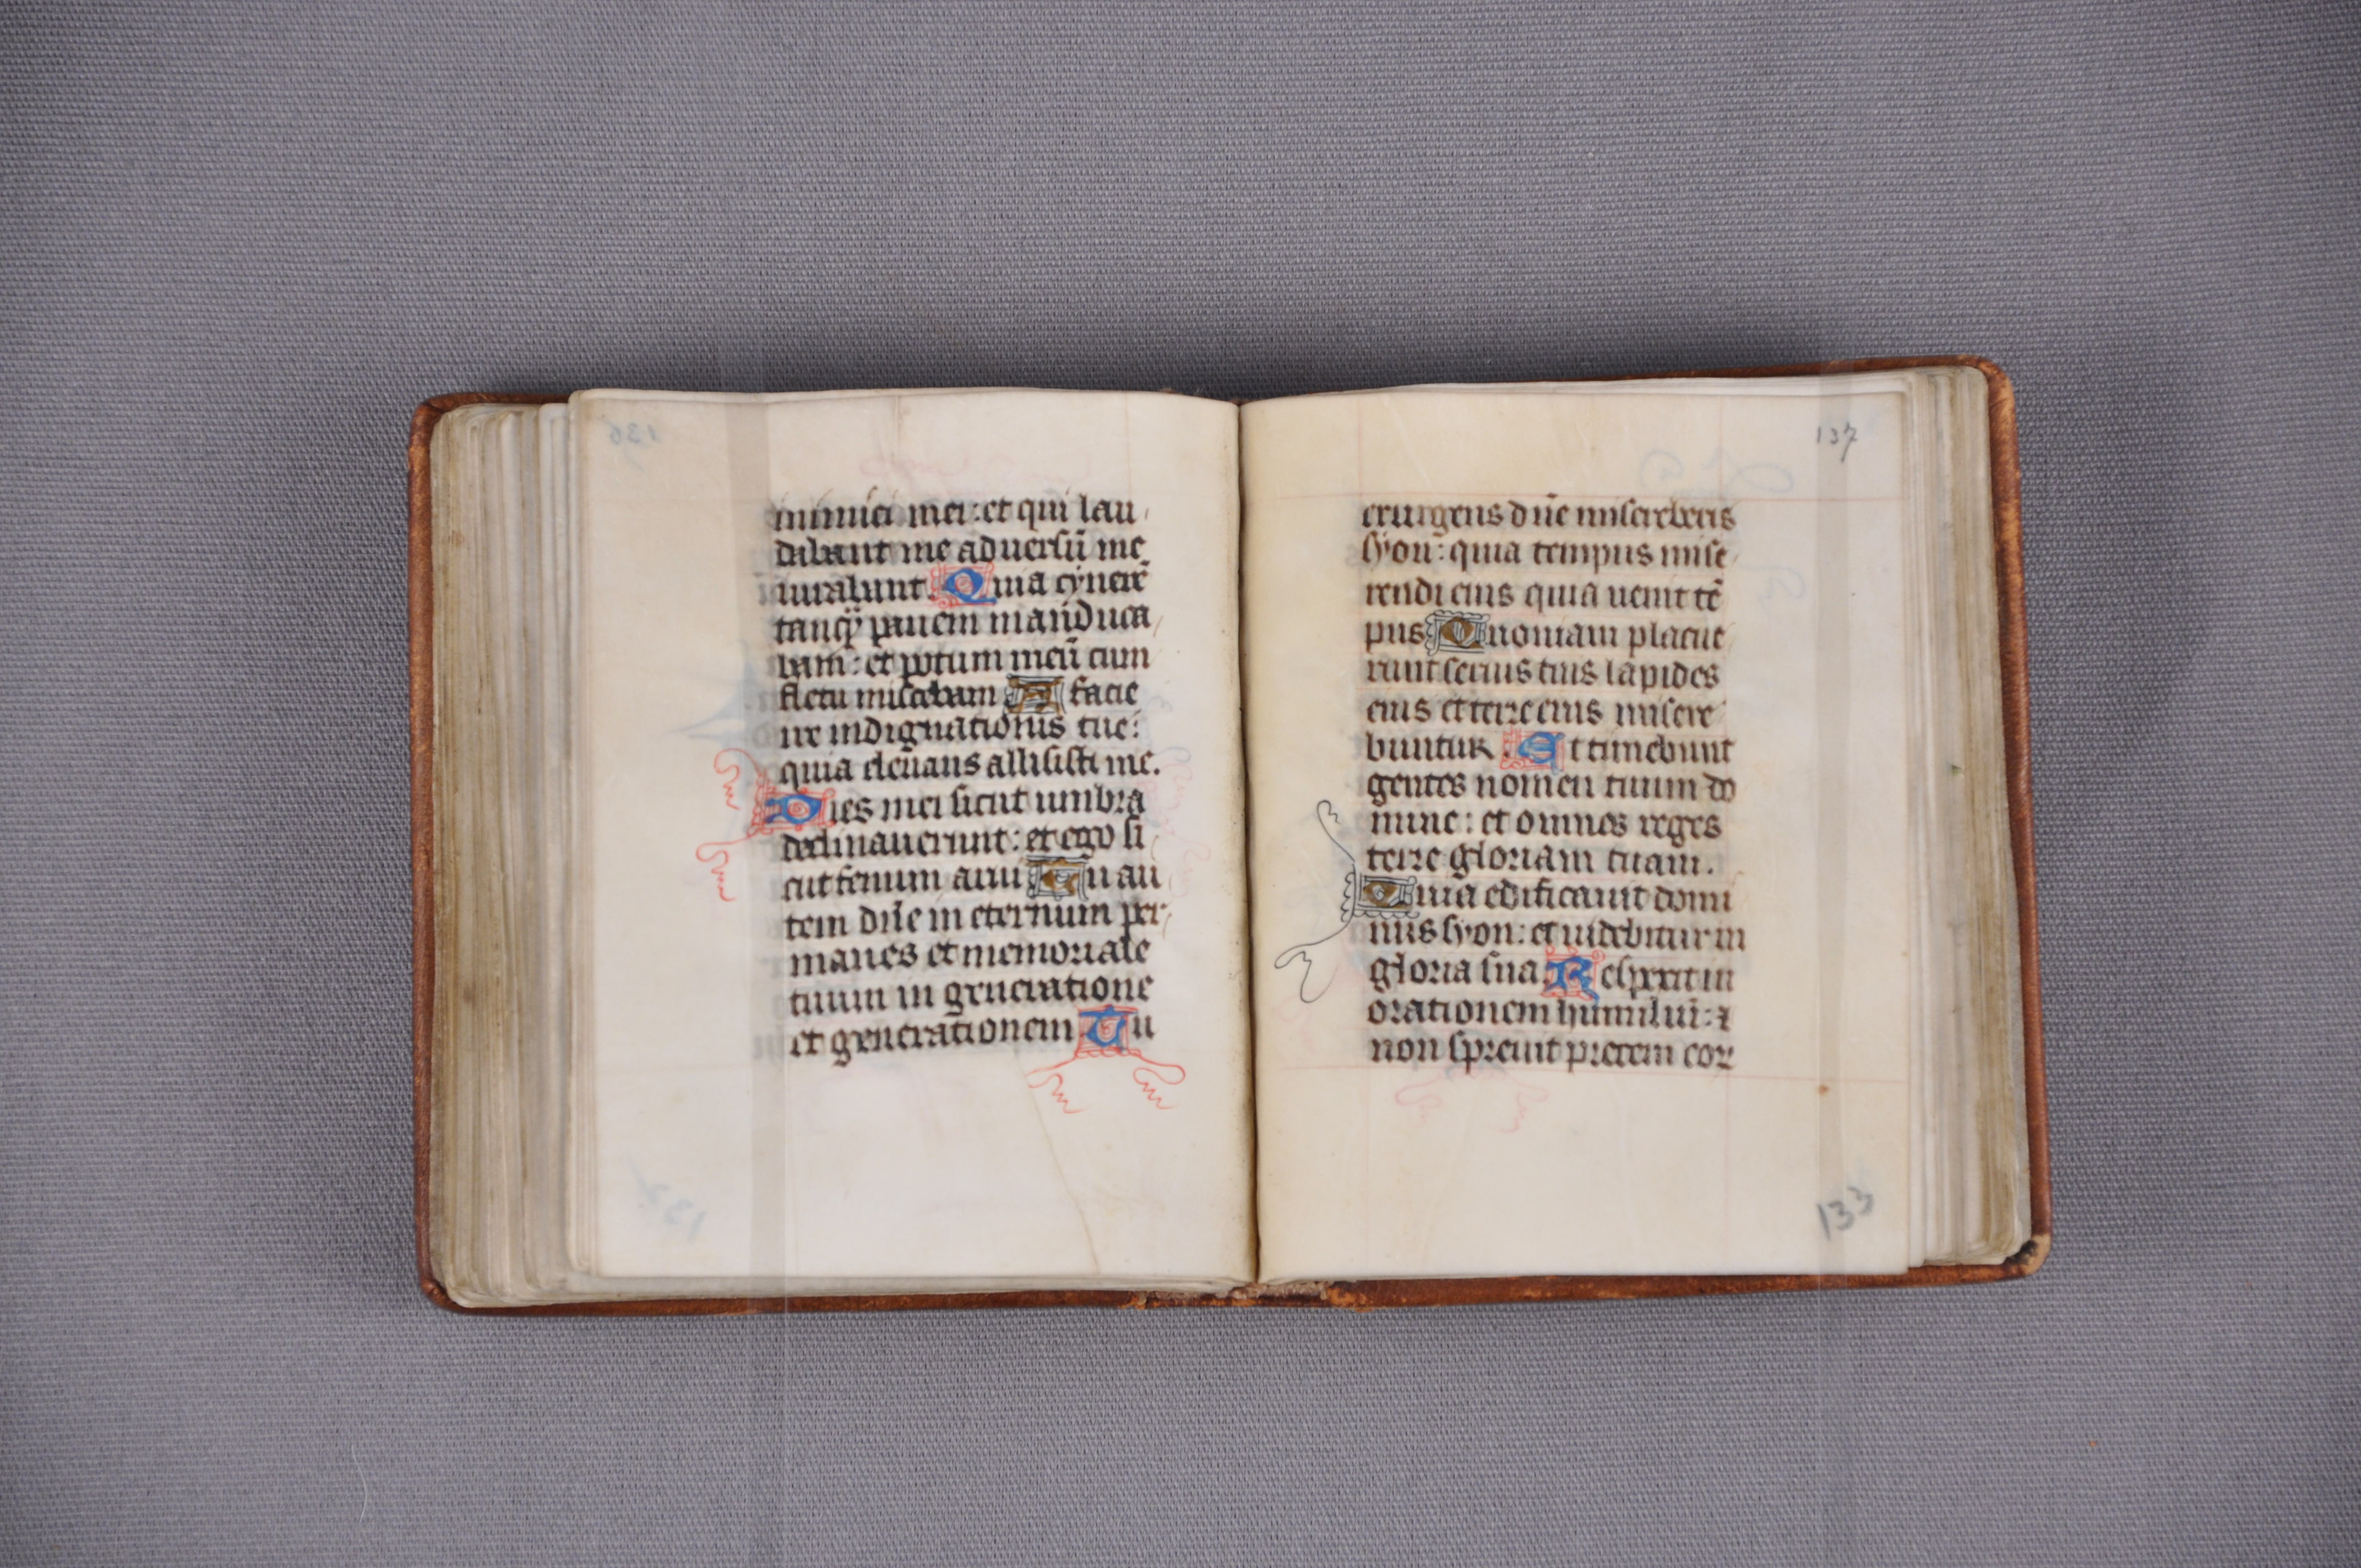 inimici mei: et qui lau
dabant me adversū me
iurabunt. Quia cynerē
tanq̄ panem manduca
bam: et potum meū cum
fletu miscebam A facie
ire indignationis tue:
quia elevans allisisti me.
Dies mei sicut umbra
declinaverunt: et ego si
cut fenum arui Tu au
tem dn̄e in eternum per
manes et memoriale
tuum in generatione
et generationem Tu
137
exurgens dn̄e misereberis
syon: quia tempus mise
rendi eius quia venit tē
pus Quoniam placue
runt servis tuis lapides
eius et terre eius misere
buntur Et timebunt
gentes nomen tuum do
mine: et omnes reges
terre gloriam tuam.
Quia edificavit domi
nus syon: et videbitur in
gloria sua Respexit in
orationem humiliū: ⁊
non sprevit precem eor
133